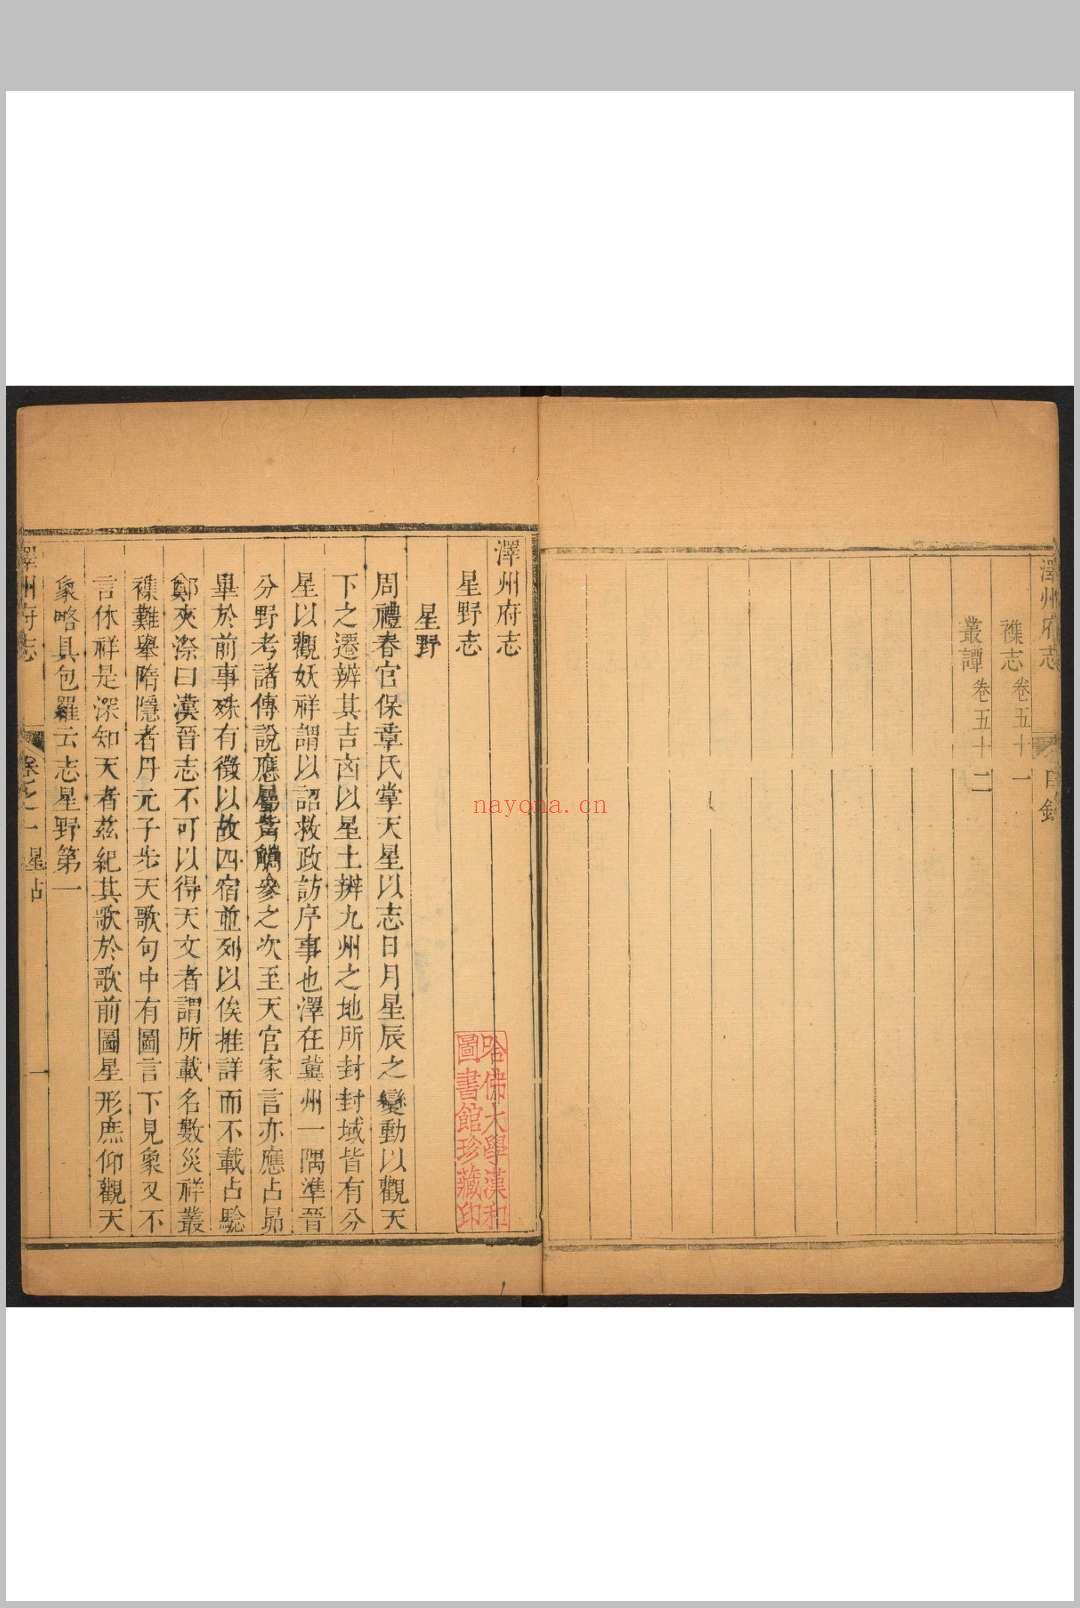 澤州府志
目錄
襍志卷五十一
叢譚卷五十二
澤州府志
星野志
星野
周禮春官保章氏掌天星以志日月星辰之變動以觀天
下之遷辨其吉凶以星土辨九州之地所封封域皆有分
星以觀妖祥謂以詔救政訪序事也澤在冀州一隅準晉
分野考諸傳說應屬觜觿參之次至天官家言亦應占昴
畢於前事殊有徵以故四宿並列以俟推詳而不載占驗
鄭夾漈曰漢晉志不可以得天文者謂所載名數災祥叢
襍難舉隋隱者丹元子步天歌句中有圖言下見象又不
言休祥是深知天者茲紀其歌於歌前圖星形庶仰觀天
象略具包羅云志星野第一
澤州府志
卷之一
星占
一
哈佛大學漢和
圖書館珍藏印
nayona.cn